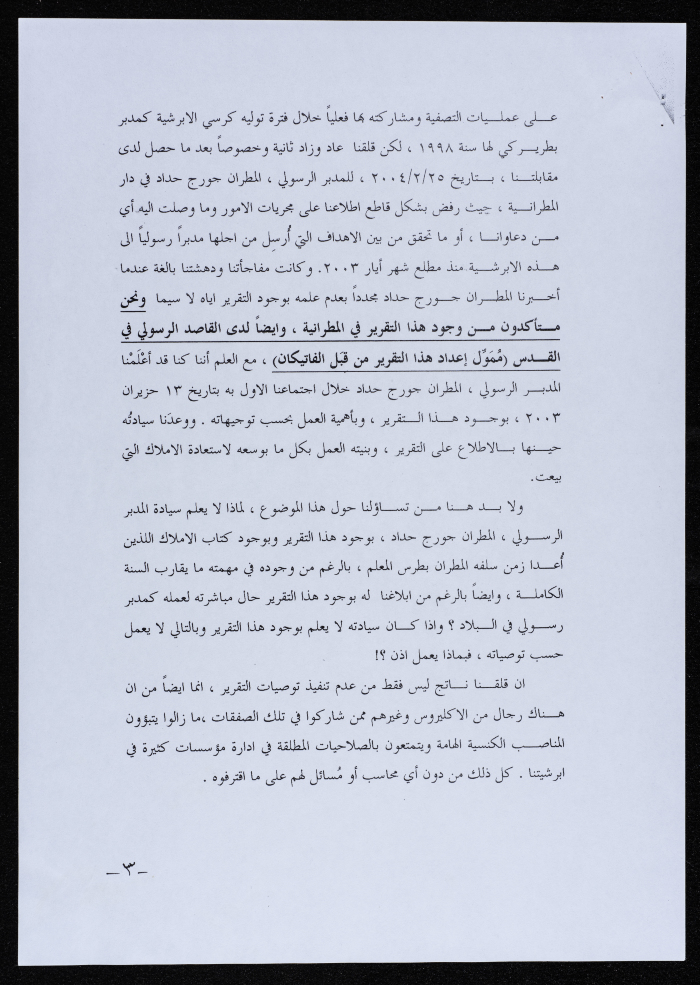 على عمليات التصفية ومشاركته بها فعلياً خلال فترة توليه كرسي الابرشية كمدبر
بطريركي لها سنة ١٩٩٨ ، لكن قلقنا عاد وزاد ثانية وخصوصاً بعد ما حصل لدى
مقابلتنا ، بتاريخ ٢٠٠٤/٢/٢٥ ، للمدبر الرسولي ، المطران جورج حداد في دار
المطرانية ، حيث رفض بشكل قاطع اطلاعنا على مجريات الامور وما وصلت اليه أي
من دعاوانا ، أو ما تحقق من بين الاهداف التي أُرسِل من اجلها مدبراً رسولياً الى
هذه الابرشية منذ مطلع شهر أيار ٢٠٠٣. وكانت مفاجأتنا ودهشتنا بالغة عندما
أخبرنا المطران جورج حداد مجدداً بعدم علمه بوجود التقرير اياه لا سيما ونحن
متأكدون من وجود هذا التقرير في المطرانية ، وايضاً لدى القاصد الرسولي في
القدس (مُمَوِّل إعداد هذا التقرير من قبَل الفاتيكان) ، مع العلم أننا كنا قد أعْلَمْنا
المدبر الرسولي ، المطران جورج حداد خلال اجتماعنا الاول به بتاريخ ١٣ حزيران
٢٠٠٣ ، بوجود هذا التقرير ، وبأهمية العمل بحسب توجيهاته . ووعدَنا سيادتُه
حينها بالاطلاع على التقرير ، وبنيته العمل بكل ما بوسعه لاستعادة الاملاك التي
بيعت.
ولا بد هنا من تساؤلنا حول هذا الموضوع ، لماذا لا يعلم سيادة المدبر
الرسولي ، المطران جورج حداد ، بوجود هذا التقرير وبوجود كتاب الاملاك اللذين
أُعدا زمن سلفه المطران بطرس المعلم ، بالرغم من وجوده في مهمته ما يقارب السنة
الكاملة ، وايضاً بالرغم من ابلاغنا له بوجود هذا التقرير حال مباشرته لعمله كمدبر
رسولي في البلاد ؟ واذا كان سيادته لا يعلم بوجود هذا التقرير وبالتالي لا يعمل
حسب توصياته ، فبماذا يعمل اذن ؟!
ان قلقنا ناتج ليس فقط من عدم تنفيذ توصيات التقرير ، انما ايضاً من ان
هناك رجال من الاكليروس وغيرهم ممن شاركوا في تلك الصفقات ،ما زالوا يتبؤون
المناصب الكنسية الهامة ويتمتعون بالصلاحيات المطلقة في ادارة مؤسسات كثيرة في
ابرشيتنا . كل ذلك من دون أي محاسب أو مُسائل لهم على ما اقترفوه .
-٣-